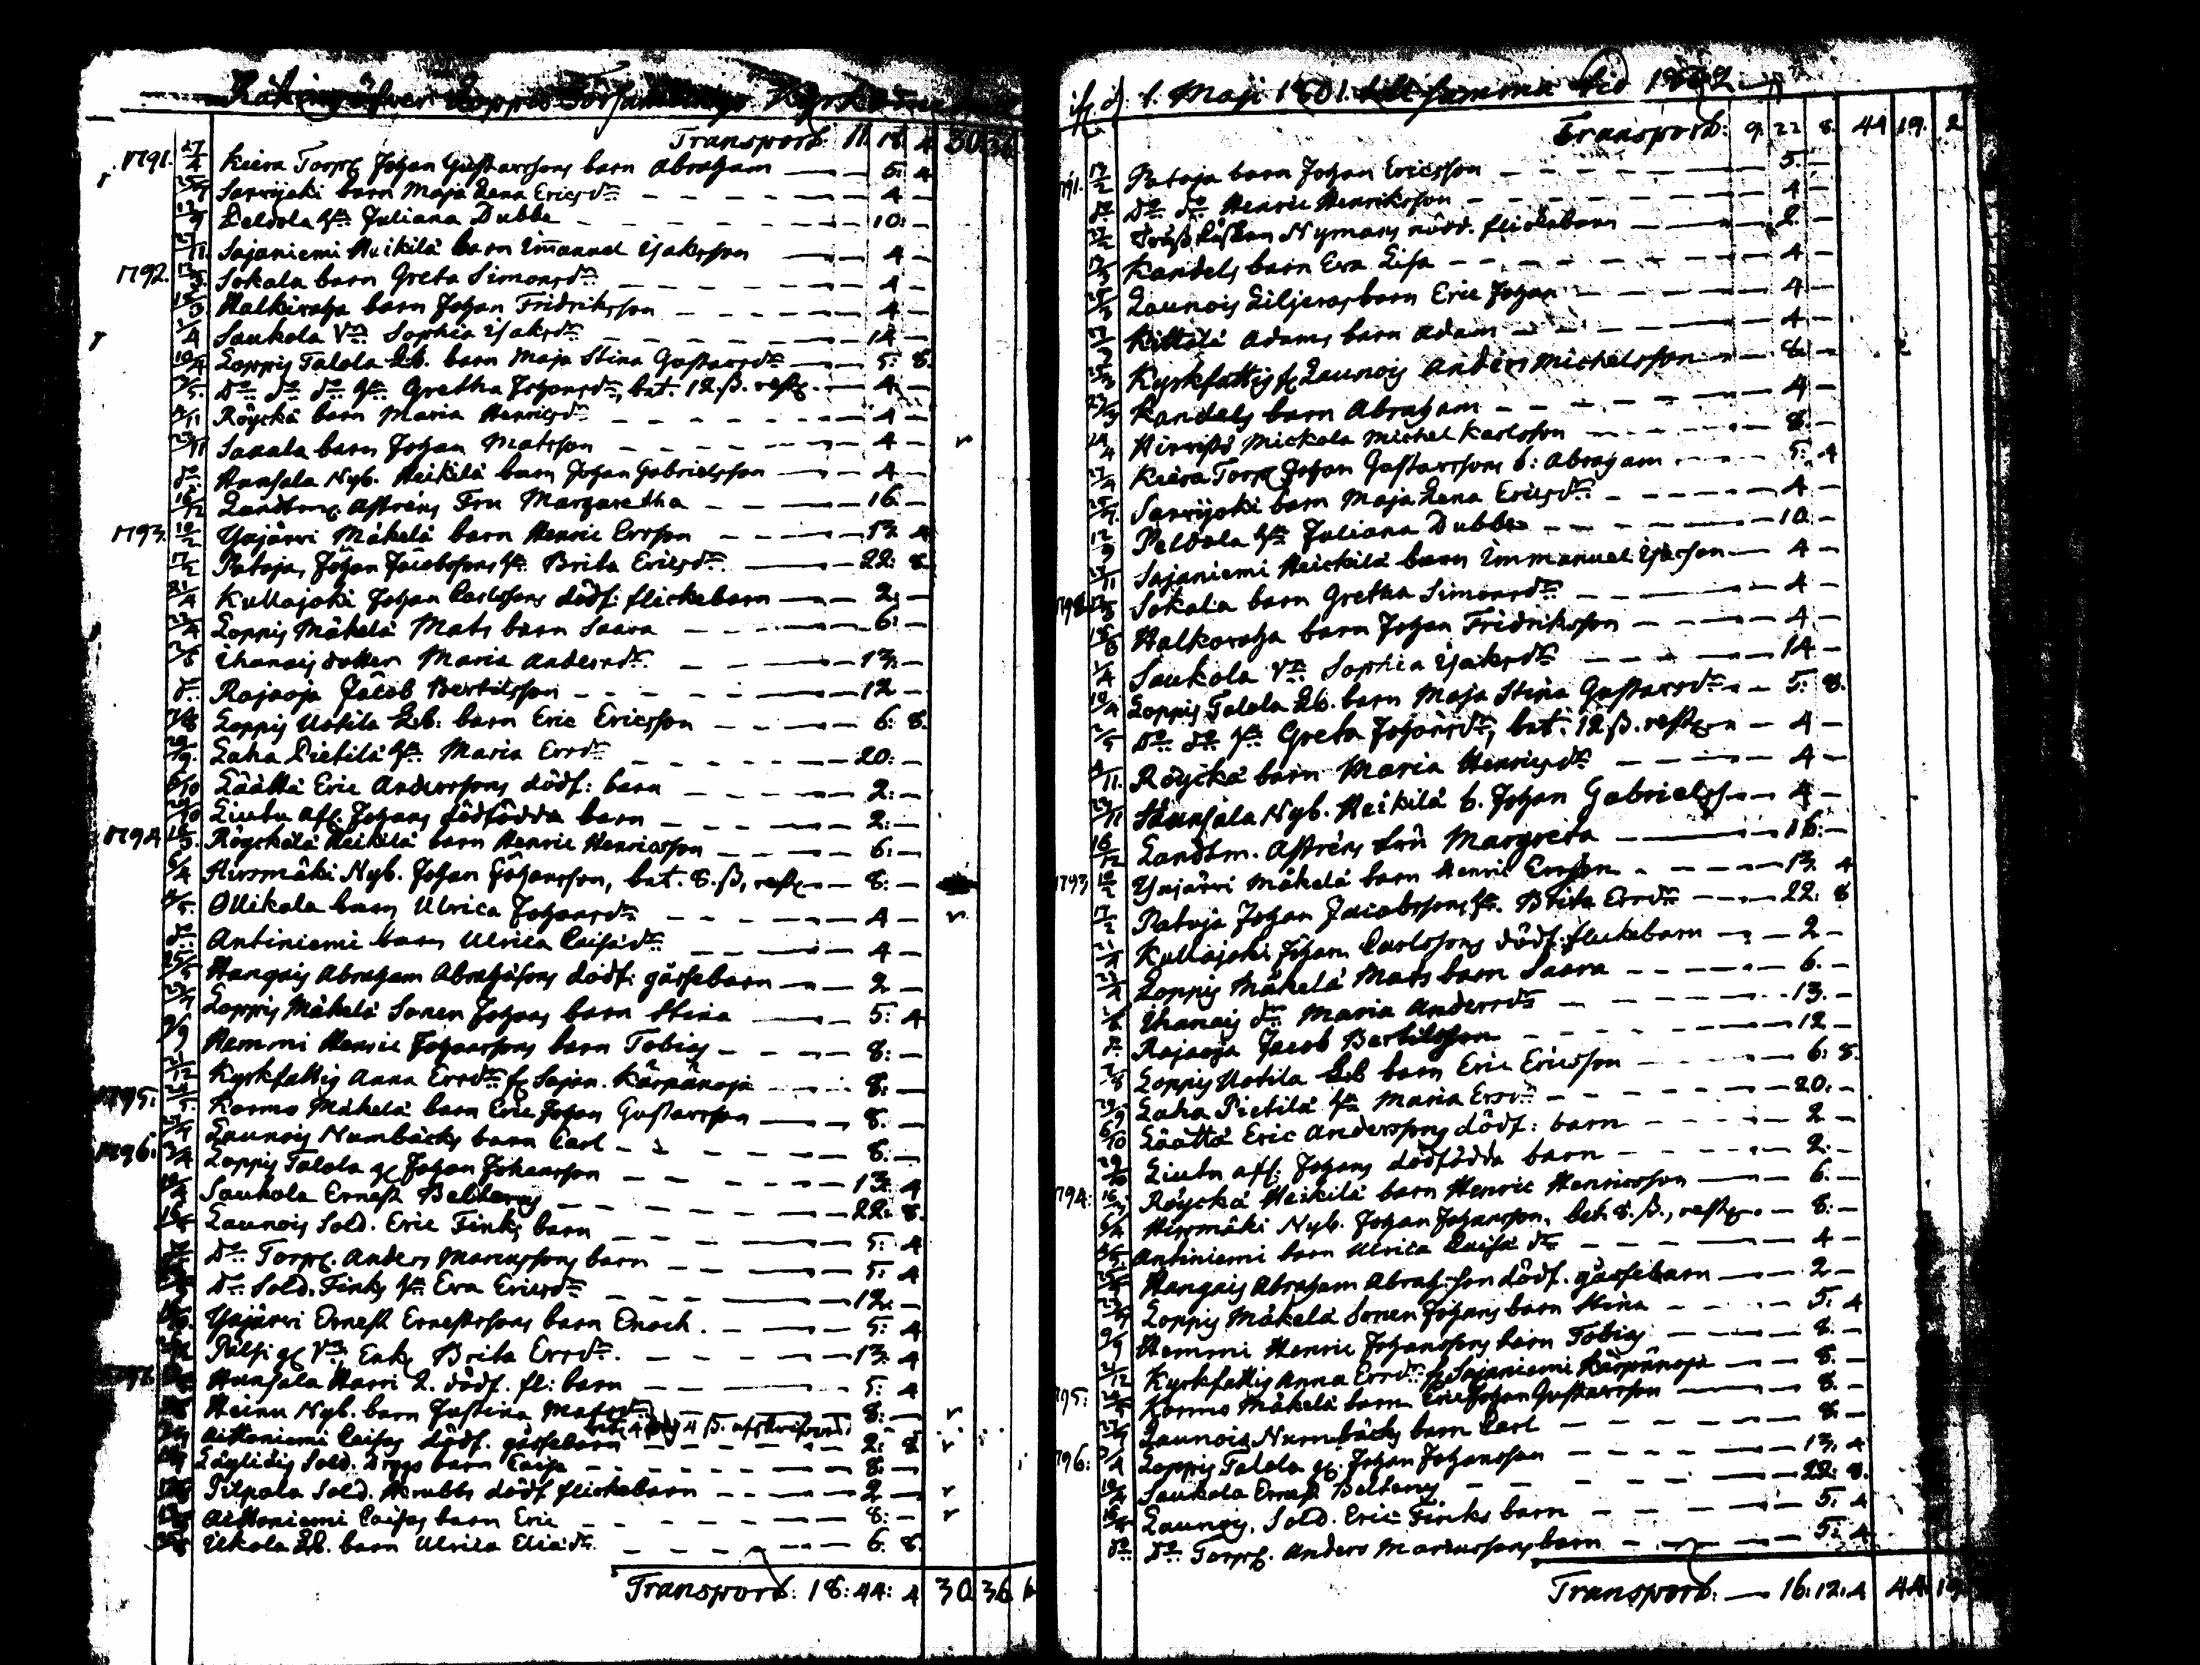 Räkning öfver Loppis Församblings Kyrko
Transport: 11. 18. 4. 30 36
1791. 27/4 Kiera Torp. Johan Gustafssons barn Abraham 5. 4
Sarrijoki barn Maja Lena Ericsdr 4 —
12/9 Peldola hu Juliana Dubbe 10: —
27/11 Sajaniemi Heikilä barn Immanuel Isaksson 4 —
1792. Sokala barn Greta Simonsdr 4 —
Halkivaha barn Johan Fridriksson 4 —
1/4 Saukola Vn Sophia Isaksdr 14 —
10/4 Loppis Talola Lb. barn Maja Stina Gustafsdr 5. 8.
2/5. Do do do hu Gretha Johansdr, bet. 12 ß. rest. 4 —
4/11 Röyckä barn Maria Henricsdr 4 —
Sakala barn Johan Matsson 4 — r
do Hunsala Nyb. Heikilä barn Johan Gabrielsson 4 —
16/12 Landtm. Astréns Fru Margaretha 16 —
1793. 10/2 Yräjärvi Mäkelä barn Henric Ersson 13. 4
17/2 Pataja, Johan Jacobssons hu Brita Ericsdr 22: 8.
21/4 Kullajoki Johan Carlssons dödf: flickebarn 2: —
Loppis Mäkelä Mats barn Saara 6: —
Ihanais dotter Maria Andersdr 13: —
do Rajaoja Jacob Bertilsson 12 —
Loppis Uotila Lb: barn Eric Ericsson 6: 8.
29/9. Laha Pietilä hu Maria Ersdr 20: —
6/10 Läättä Eric Anderssons dödf: barn 2: —
29/10 Liutu afl. Johans dödfödda barn 2: —
1794 16/3. Röyckälä Heikilä barn Henric Henricsson 6: —
6/4 Hirsmäki Nyb. Johan Johansson, bet. 8. ß, rest. 8: —
4/5. Ollikala barn Ulrica Johansdr 4 — r
do Antiniemi barn Ulrica Caisadr 4 —
25/5 Hangais Abraham Abrahãsons dödf: gåssebarn 2 —
Loppis Mäkelä Sonen Johans barn Stina 5: 4
9/9 Hemmi Henric Johanssons barn Tobias 8: —
2/12 Kyrkfattig Anna Ersdr f. Sajan. Kärpänoja 8: —
1795: Kormo Mäkelä barn Eric Johan Gustafsson 8. —
Launois Numbäcks barn Carl 8. —
1796. 3/4 Loppis Talola g. Johan Johansson 13: 4
10/4 Saukola Ernest Beltens 22: 8.
Launois Sold. Eric Finks barn 5: 4
Do Torp. Anders Marcussons barn 5: 4
Do Sold. Finks hu Eva Ericsdr 12: —
Yräjärvi Ernest Ernestssons barn Enoch. 5: 4
Pälsi g. Vn Enk. Brita Ersdr. 13: 4
Hunsala Harri L. dödf. fl: barn 5: 4
Heinu Nyb. barn Justina Matsdr 8: — r
Aittoniemi Caisas dödf. gåssebarn 2: 8 r
Läylidis Sold. barn Caisa 8: —
Pilpala Sold. Skrubbs dödf flickebarn 2 — r
Aittoniemi Caisas barn Eric 8: — r
Ukola Lb. barn Ulrica Eliædr. 6. 8.
Transport: 18: 44: 4 30 36
d. 1. Maji 1801. till samma tid 1802.
Transport: 9. 22 8. 44 19. 2
17/2 Pataja barn Johan Ericsson 5. —
do Do do Henric Henriksson 4 —
Nymans nödd. flickebarn 2. —
Kandels barn Eva Lisa 4 —
Launois Liljeros barn Eric Johan 4 —
Kittälä Adams barn Adam 4 —
Kyrkfattig f. Launois Anders Michelsson 8. —
Kandels barn Abraham 4 —
Mickola Michel Karlsson 8. —
27/4 Kiera Torp. Johan Gustafssons b: Abraham 5: 4
Sarrijoki barn Maja Lena Ericsdr 4 —
12/9 Peldola hu Juliana Dubbe 10: —
27/11 Sajaniemi Heickilä barn Immanuel Isacson 4 —
Sokala barn Gretha Simonsdr 4 —
Halkovaha barn Johan Fridriksson 4 —
1/4 Saukola Vn Sophia Isaksdr 14 —
10/4 Loppis Talola Lb. barn Maja Stina Gustafsdr 5: 8.
2/5 Do do hu Greta Johansdr, bet. 12 ß. rest. 4 —
4/11. Röyckä barn Maria Henricsdr 4 —
Hunsala Nyb. Heikilä b. Johan Gabrielss. 4 —
16/12 Landtm. Astréns Fru Margreta 16: —
1793 10/2 Yräjärvi Mäkelä barn Henric Ersson 13. 4
17/2 Pataja Johan Jacobssons hu. Brita Ersdr 22: 8
Kullajoki Johan Carlssons dödf: flickebarn 2 —
Loppis Mäkelä Mats barn Saara 6. —
Ihanais dr Maria Andersdr 13. —
do Rajaoja Jacob Bertilsson 12 —
Loppis Uotila Lb barn Eric Ericsson 6: 8.
29/9 Laha Pietilä hu Maria Ersdr 20. —
6/10 Läättä Eric Anderssons dödf: barn 2 —
29/10 Liutu afl: Johans dödfödda barn 2: —
794: 16/3 Röyckä Heikilä barn Henric Henricsson 6. —
6/4 Hirsmäki Nyb. Johan Johansson, bet. 8. ß., rest. 8: —
4/5 Antiniemi barn Ulrica Caisä dr 4 —
Hangais Abraham Abrah:son dödf. gåssebarn 2 —
Loppis Mäkelä Sonen Johans barn Stina 5: 4
9/9 Hemmi Henric Johanssons barn Tobias 8. —
2/12 Kyrkfattig Anna Ersdr f. Sajaniemi Kärpänoja 8. —
795: Kormo Mäkelä barn Eric Johan Gustafsson 8. —
Launois Numbäcks barn Carl 8. —
796: 3/4 Loppis Talola g. Johan Johansson 13. 4
10/4 Saukola Ernest Beltens 22: 8.
Launois. Sold. Eric Finks barn 5: 4
do Do Torp. Anders Marcussons barn 5: 4
Transport: 16: 12: 4 44: 19